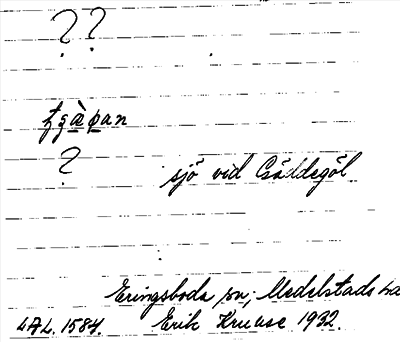 ? ?
ʈʂàpan
?
sjö vid Gäddegöl
Eringsboda sn; Medelstads hd
LAL. 1584. Erik Kruuse 1932.